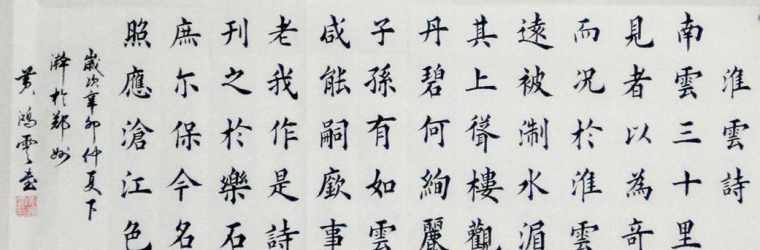 淮雲詩
南雲三十里
見者以為奇
而況於淮雲
遠被淛水湄
其上聳樓觀
丹碧何絢麗
子孫有如雲
咸能嗣厥事
老我作是詩
刊之於樂石
庶尔保今名
照應滄江色
歲次辛卯仲夏下
澣於鄭州
黄鴻雲書